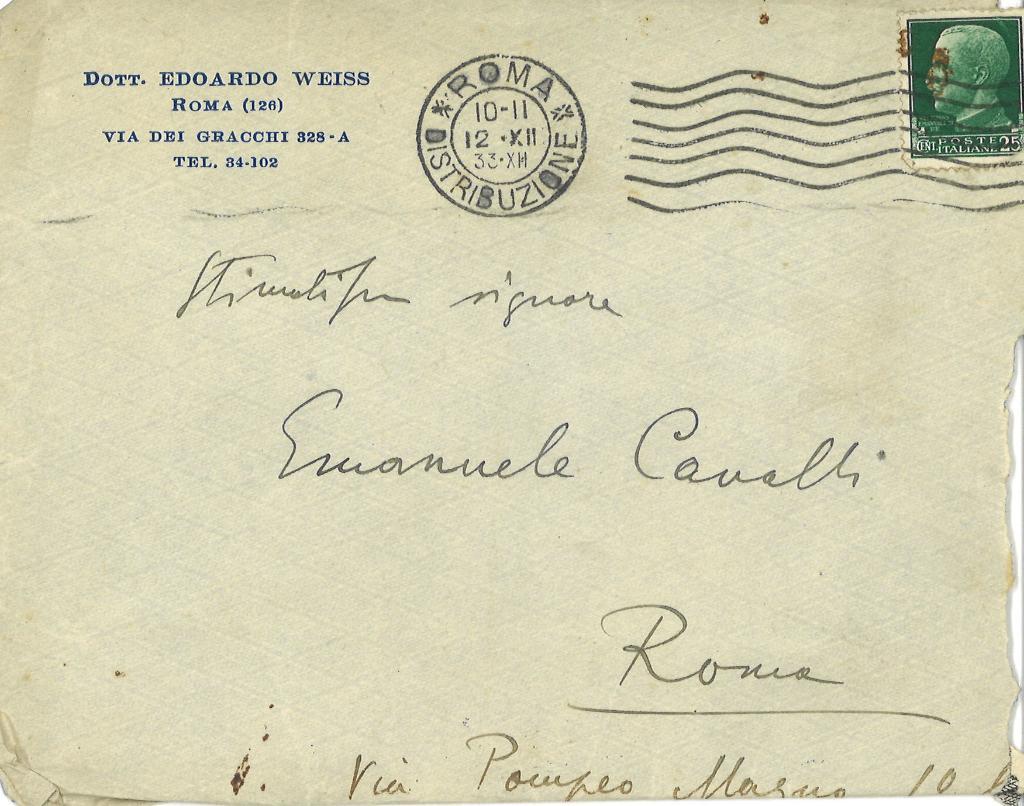 DOTT. EDOARDO WEISS
ROMA (126)
VIA DEI GRACCHI 328-A
TEL. 34-102
* ROMA *
10-11
12 · XII
33·XII
DISTRIBUZIONE
CENT. POSTE 25
ITALIANE
signore
Emanuele Cavalli
Roma
Via Pompeo Magno 10